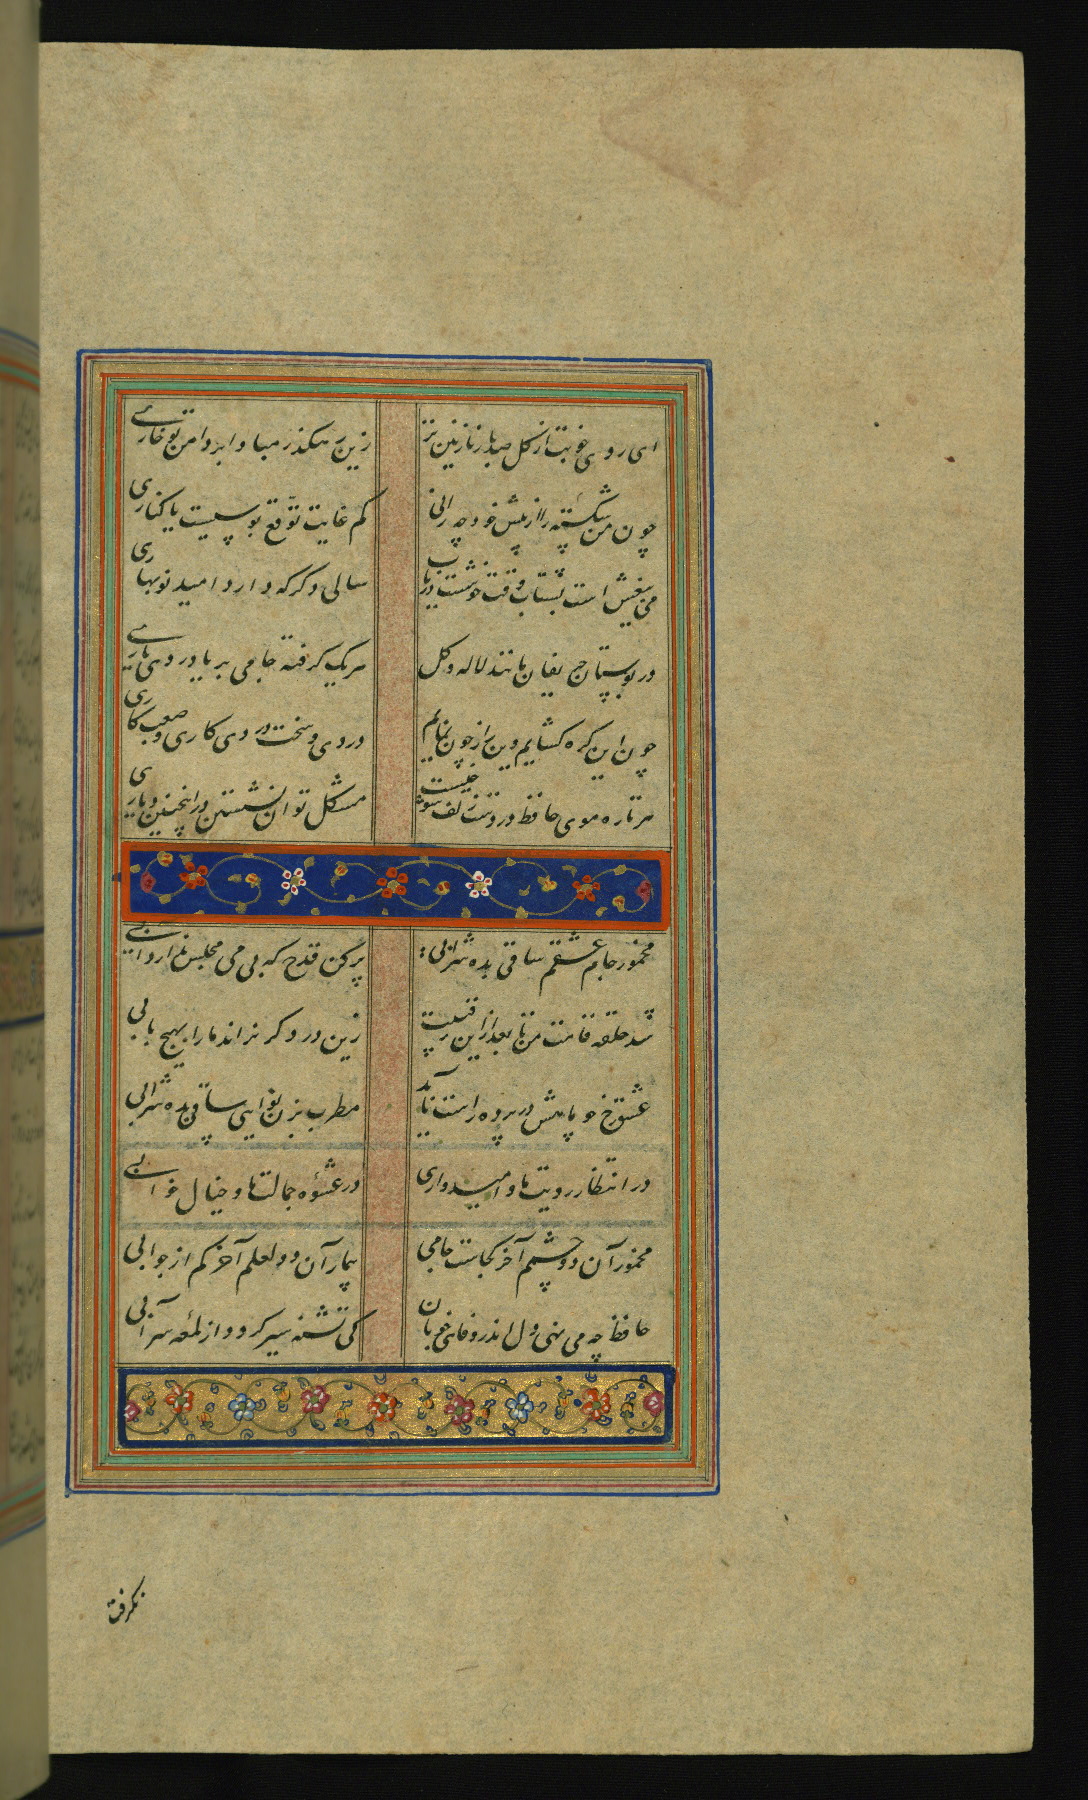 ای روی خوبت از گل صد بار نازنین تر
زین رهگذر مبادا بر دامن تو خاری
چون من شکسته را از پیش خود چه رانی
کم غایت توقع بوسیست یا کناری
می بیغش است بشتاب وقت خوشست دریاب
سالی دگر که دارد امید نوبهاری
در بوستان حریفان مانند لاله و گل
هر یک گرفته جامی بر یاد روی یاری
چون این گره کشایم وین راز چون نمایم
دردی و سخت دردی کاری و صعب کاری
هر تاره موی حافظ در دست زلف شوخیست
مشکل توان نشستن در اینچنین دیاری
مخمور جام عشقم ساقی بده شرابی
پر کن قدح که بی می مجلس ندارد آبی
شد حلقه قامت من تا بعد ازین رقیبت
زین در دگر نراند ما را بهیچ بابی
عشق رخ چو ماهش در پرده راست ناید
مطرب بزن نوایی ساقی بده شرابی
در انتظار رویت ما و امیدواری
در عشوه جمالت ما و خیال خوابی
مخمور آن دو چشم آخر کجاست جامی
بیمار آن دو لعلم آخر کم از جوابی
حافظ چه می نهی دل اندر وفای خوبان
کی تشنه سیر گردد از لمعه سرابی